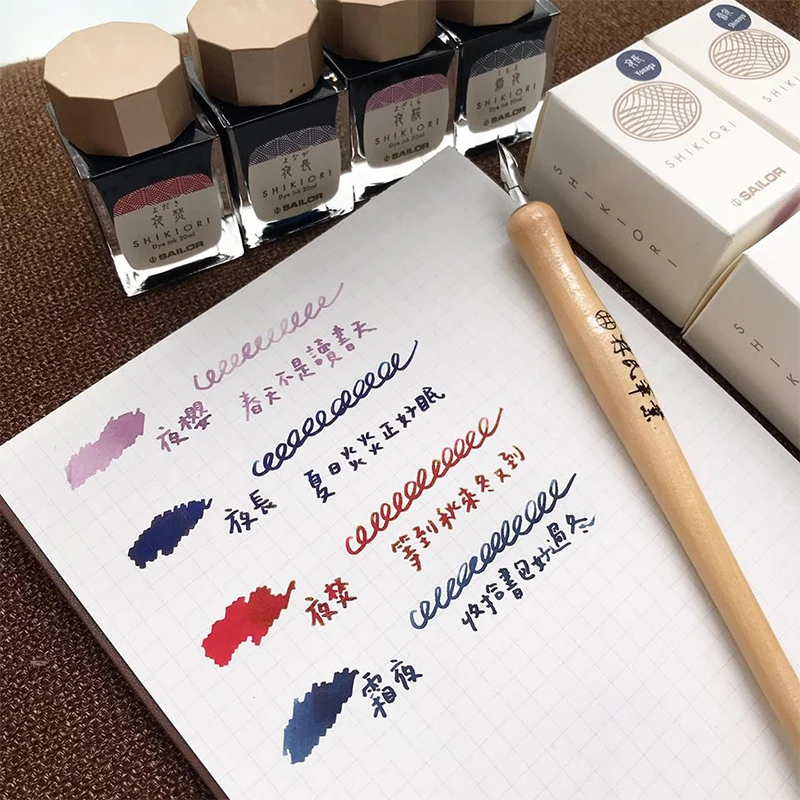 よだき
夜焚
SHIKIORI
Dye ink 20ml
SAILOR
よなが
夜長
SHIKIORI
Dye ink 20ml
SAILOR
よざくら
夜桜
SHIKIORI
Dye ink 20ml
SAILOR
しもよ
霜夜
SHIKIORI
Dye ink 20ml
SAILOR
夜長
Yonaga
SHIKIORI
SAILOR
SHIKIORI
霜夜
Shimoyo
SHIKIORI
SHIKIORI
夜櫻 春天不是讀書天
夜長 夏日炎炎正好眠
夜焚 等到秋來冬又到
霜夜 收拾書包好過冬